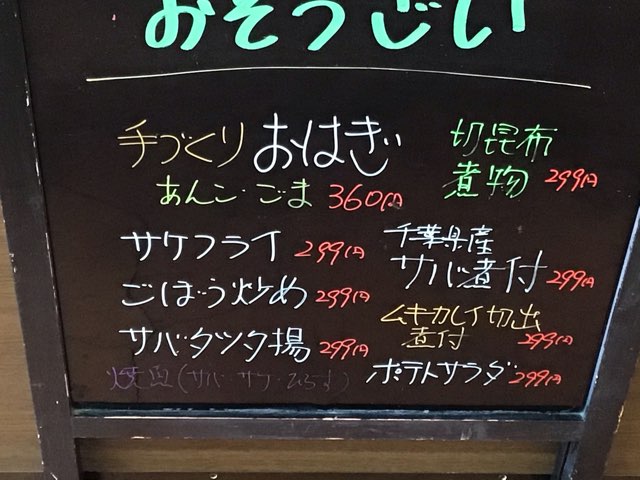 おそうざい
手づくりおはぎ
あんこ・ごま 360円
サケフライ 299円
ごぼう炒め 299円
サバタツタ揚 299円
焼魚(サバ・サケ・ひらす)
切昆布
煮物 299円
千葉県産
サバ煮付 299円
ムキカレイ切出
煮付 299円
ポテトサラダ 299円